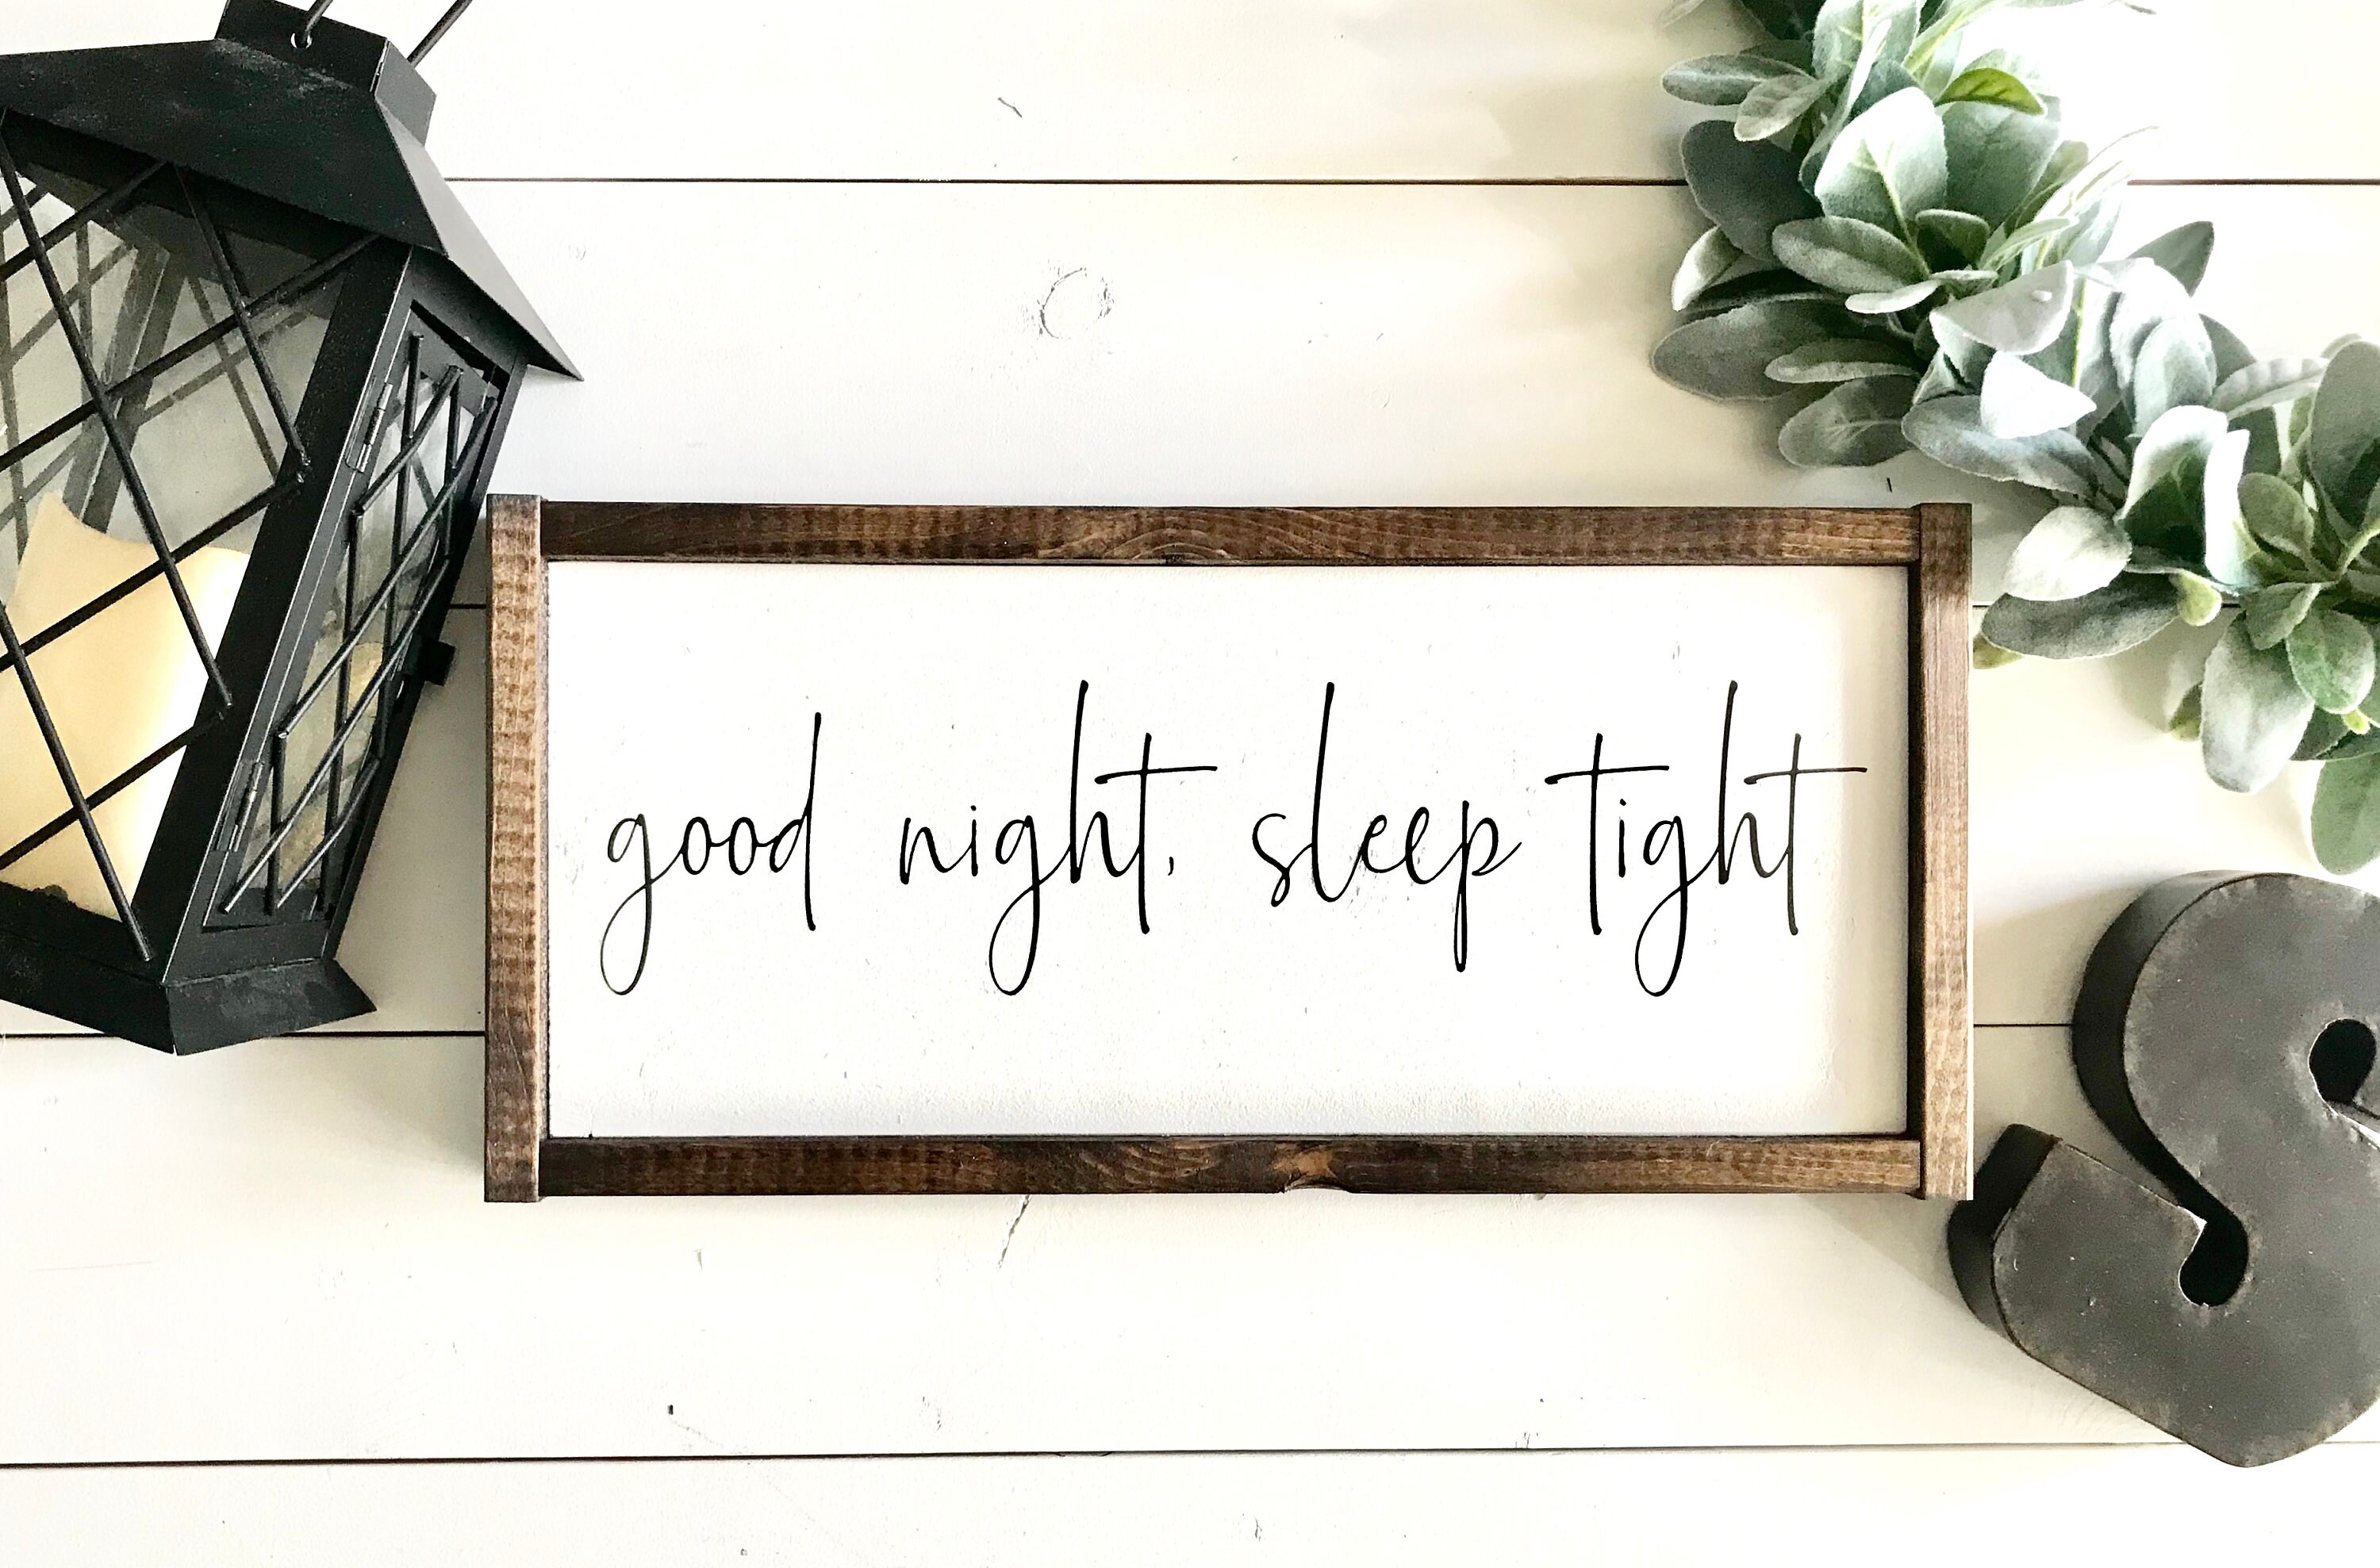 good night, sleep tight
S